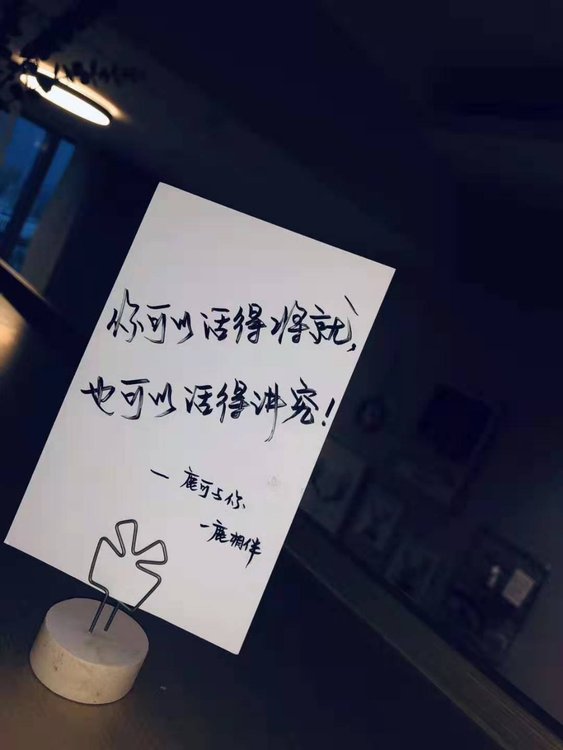 你可以活得将就,
也可以活得讲究!
一鹿可与你
一鹿相伴